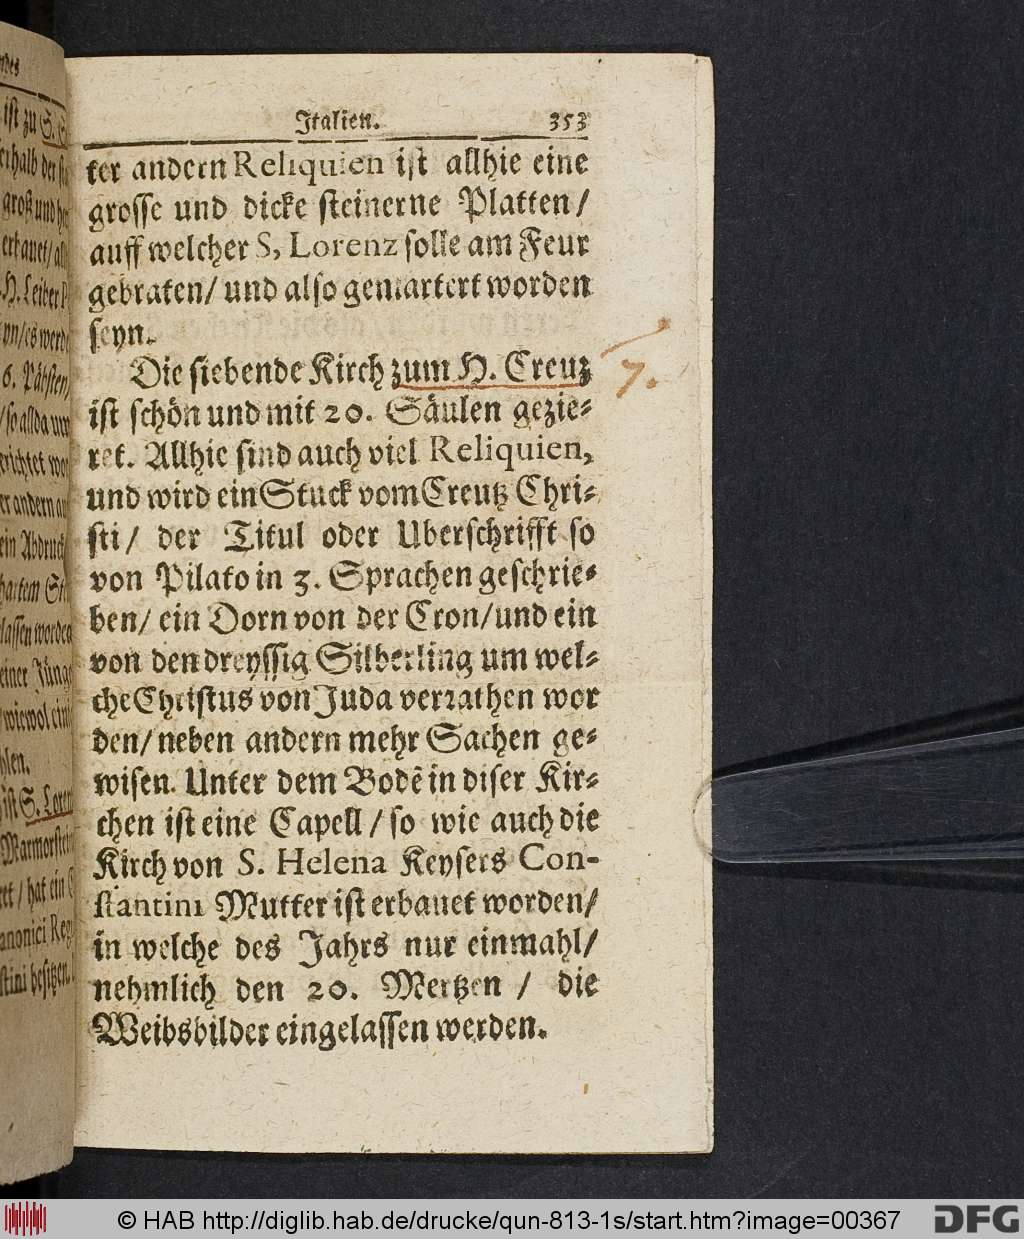 Italien. 353
ter andern Reliquien ist allhie eine
grosse und dicke steinerne Platten /
auff welcher S, Lorenz solle am Feur
gebraten / und also gemartert worden
seyn.
Die siebende Kirch zum H. Creuz
7.
ist schön und mit 20. Säulen gezie-
ret. Allhie sind auch viel Reliquien,
und wird ein Stuck vom Creutz Chri-
sti / der Titul oder Uberschrifft so
von Pilato in 3. Sprachen geschrie-
ben / ein Dorn von der Cron / und ein
von den dreyssig Silberling um wel-
che Christus von Juda verrathen wor
den / neben andern mehr Sachen ge-
wisen. Unter dem Bodẽ in diser Kir-
chen ist eine Capell / so wie auch die
Kirch von S. Helena Keysers Con-
stantini Mutter ist erbauet worden /
in welche des Jahrs nur einmahl /
nehmlich den 20. Mertzen / die
Weibsbilder eingelassen werden.
ist zu S.
6. Päbsten,
so allda
ein Abdruck
lassen worden
wiewol
ist S. Loren
hat ein
besitzen.
© HAB http://diglib.hab.de/drucke/qun-813-1s/start.htm?image=00367
DFG